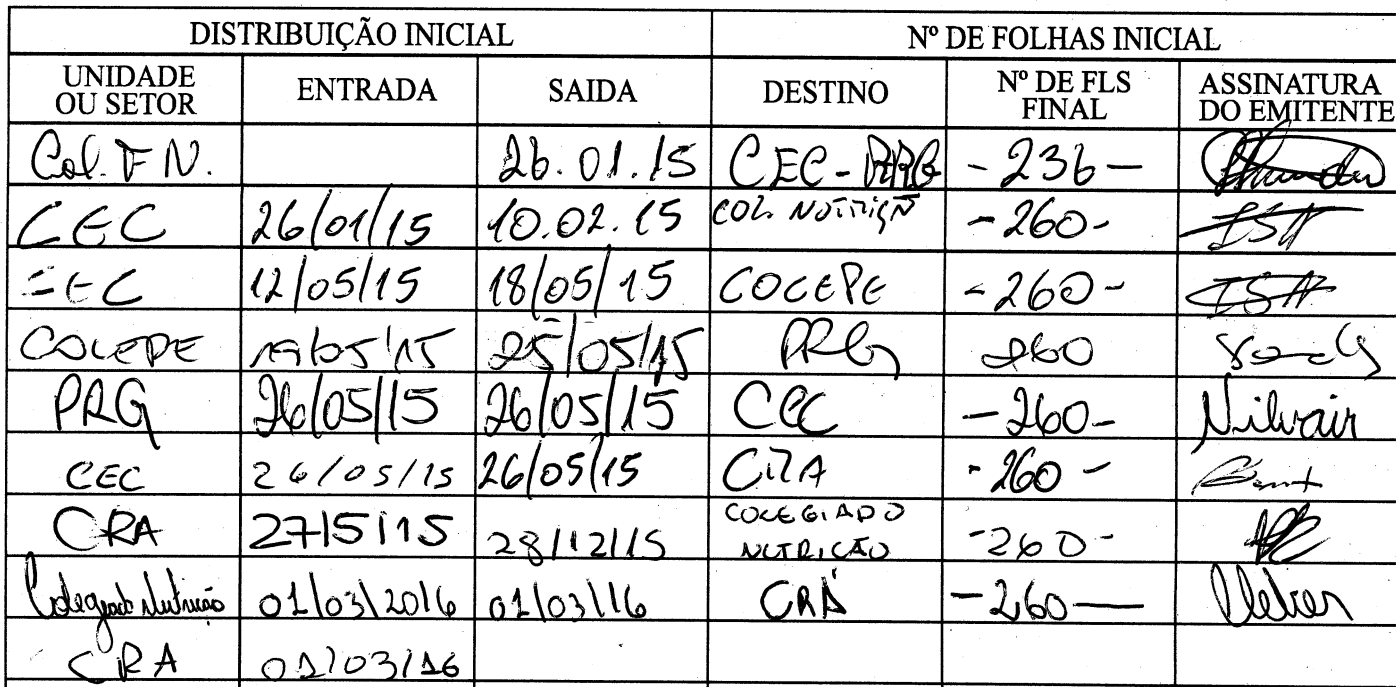 DISTRIBUIÇÃO INICIAL Nº DE FOLHAS INICIAL
UNIDADE OU SETOR ENTRADA SAIDA DESTINO Nº DE FLS FINAL ASSINATURA DO EMITENTE
Col. F N. 26.01.15 CEC - PRG - 236 -
CEC 26/01/15 10.02.15 COL. NUTRIÇÃ - 260 -
CEC 12/05/15 18/05/15 COCEPE - 260 -
COCEPE 19/05/15 25/05/15 PRG 260
PRG 26/05/15 26/05/15 CEC - 260 - Nilvair
CEC 26/05/15 26/05/15 CRA - 260 -
CRA 27/5/15 28/12/15 COLEGIADO NUTRIÇÃO - 260 -
Colegiado Nutrição 01/03/2016 01/03/16 CRA - 260 -
CRA 01/03/16